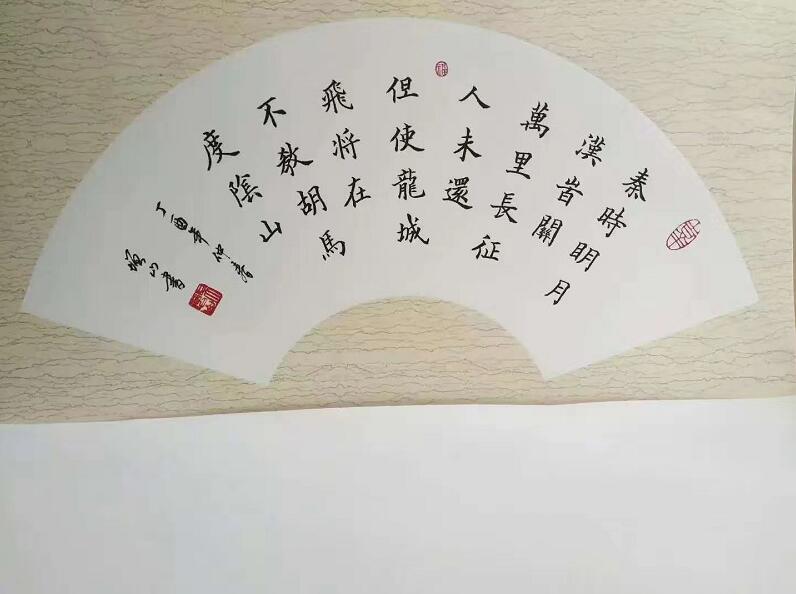 秦時明月
漢旹關
萬里長征
人未還
但使龍城
飛将在
不教胡馬
度陰山
丁酉年仲春
山書